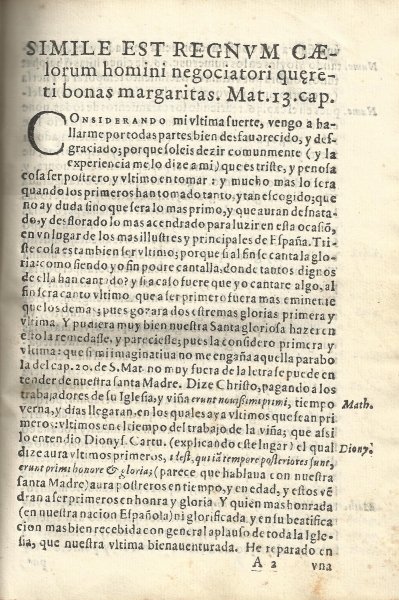 SIMILE EST REGNVM CÆ-
lorum homini negociatori quęrē-
ti bonas margaritas. Mat. 13. cap.
CONSIDERANDO mi vltima suerte, vengo a ha-
llarme por todas partes bien desfauorecido, y des-
graciado; porque soleis dezir comunmente (y la
experiencia me lo dize a mi) que es triste, y penosa
cosa ser postrero y vltimo en tomar: y mucho mas lo sera
quando los primeros han tomado tanto, y tan escogido; que
no ay duda sino que sera lo mas primo, y que auran desnata-
do, y desflorado lo mas acendrado para luzir en esta ocasiō,
en vn lugar de los mas illustres y principales de España. Tri-
ste cosa es tambien ser vltimo; porque si al fin se canta la glo-
ria: como siendo yo fin podre cantalla, donde tantos dignos
de ella han cantado? y si a caso fuere que yo cantare algo, al
fin sera canto vltimo, que a ser primero fuera mas eminēte
que los demas; pues gozara dos estremas glorias primera y
vltima. Y pudiera muy bien nuestra Santa gloriosa hazer en
esto la remedasse, y pareciesse; pues la considero primera y
vltima: que si mi imaginatiua no me engaña aquella parabo
la del cap. 20. de S. Mat. no muy fuera de la letra se puede en
tender de nuestra santa Madre. Dize Christo, pagando a los
trabajadores de su Iglesia, y viña erunt nouissimi primi, tiempo Math.
verna, y dias llegaran, en los quales aya vltimos que sean pri
meros: vltimos en el tiempo del trabajo de la viña; que assi
lo entendio Dionys. Cartu. (explicando este lugar) el qual Diony.
dize aura vltimos primeros, i. est, qui iā tempore posteriores sunt,
erunt primi honore & gloria; (parece que hablaua con nuestra
santa Madre) aura postreros en tiempo, y en edad, y estos vē
dran a ser primeros en honra y gloria. Y quien mas honrada
(en nuestra nacion Española) ni glorificada, y en su beatifica
cion mas bien recebida con general aplauso de toda la Igle-
sia, que nuestra vltima bienauenturada. He reparado en
A 2 vna